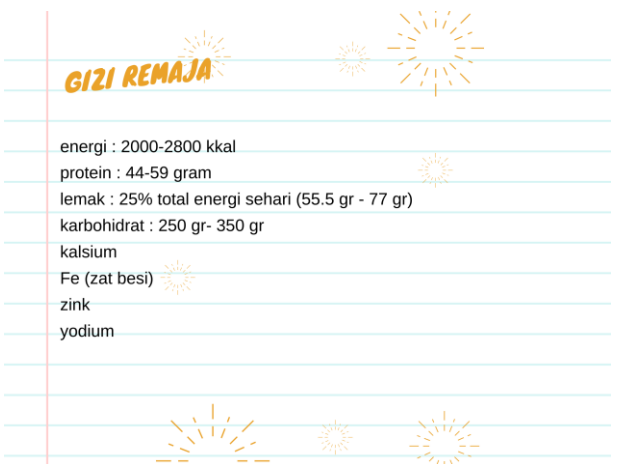 GIZI REMAJA
energi : 2000-2800 kkal
protein : 44-59 gram
lemak : 25% total energi sehari (55.5 gr - 77 gr)
karbohidrat : 250 gr- 350 gr
kalsium
Fe (zat besi)
zink
yodium